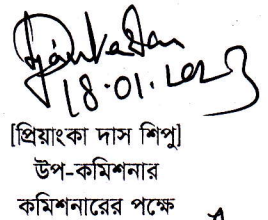 18.01.2023
[প্রিয়াংকা দাস শিপু]
উপ-কমিশনার
কমিশনারের পক্ষে